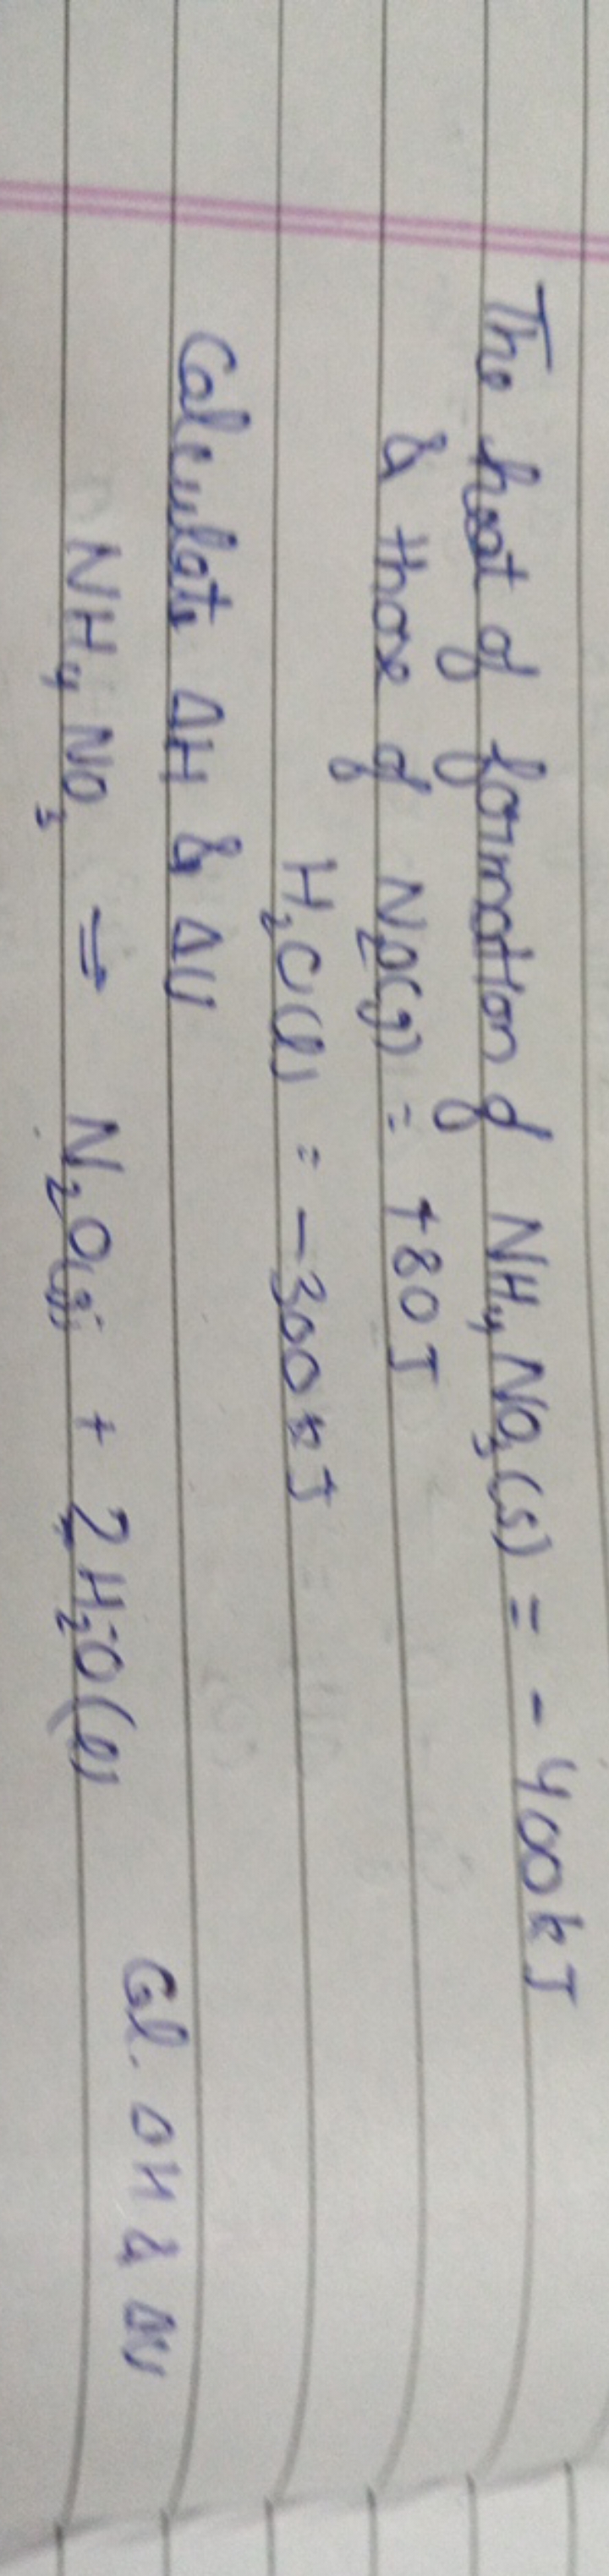 The heat of formation of NH₄NO₃(s) = -400kJ
& those of N₂O(g) = +80J
H₂O(l) = -300kJ
Calculate ΔH & ΔU
NH₄NO₃ → N₂O(g) + 2H₂O(l)
Cal. ΔH & ΔU